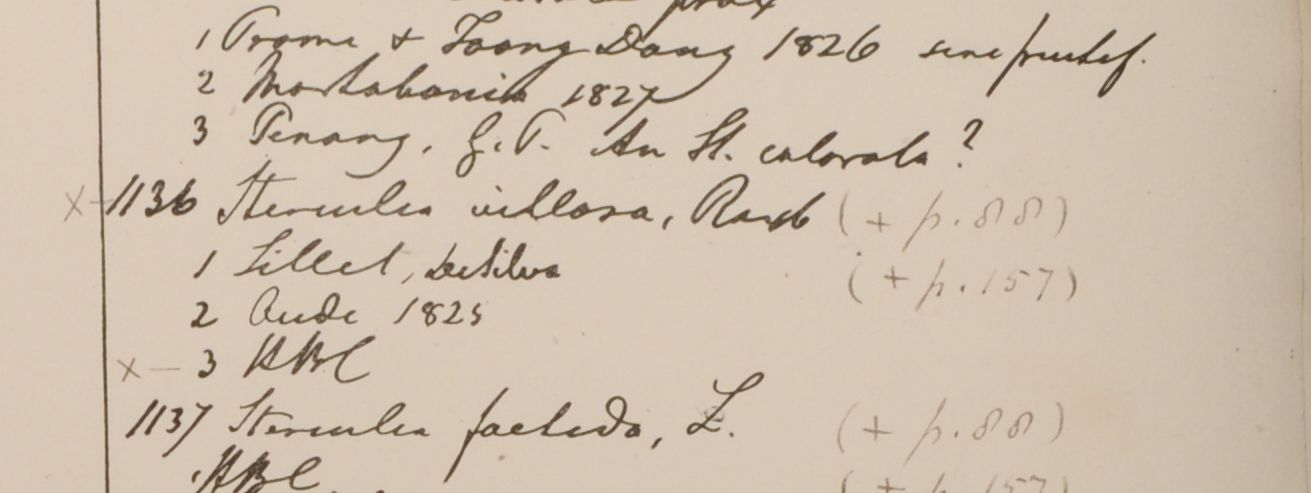 prox
1 Prome & Toong Dong 1826 sine fructif.
2 Martabania 1827
3 Penang, G.P. An St. colorata ?
x- 1136 Sterculia villosa, Roxb (+ p. 88)
1 Sillet, de Silva (+ p. 157)
2 Oude 1825
x - 3 HBC
1137 Sterculia foetida, L. (+ p. 88)
HBC (+ p. 157)